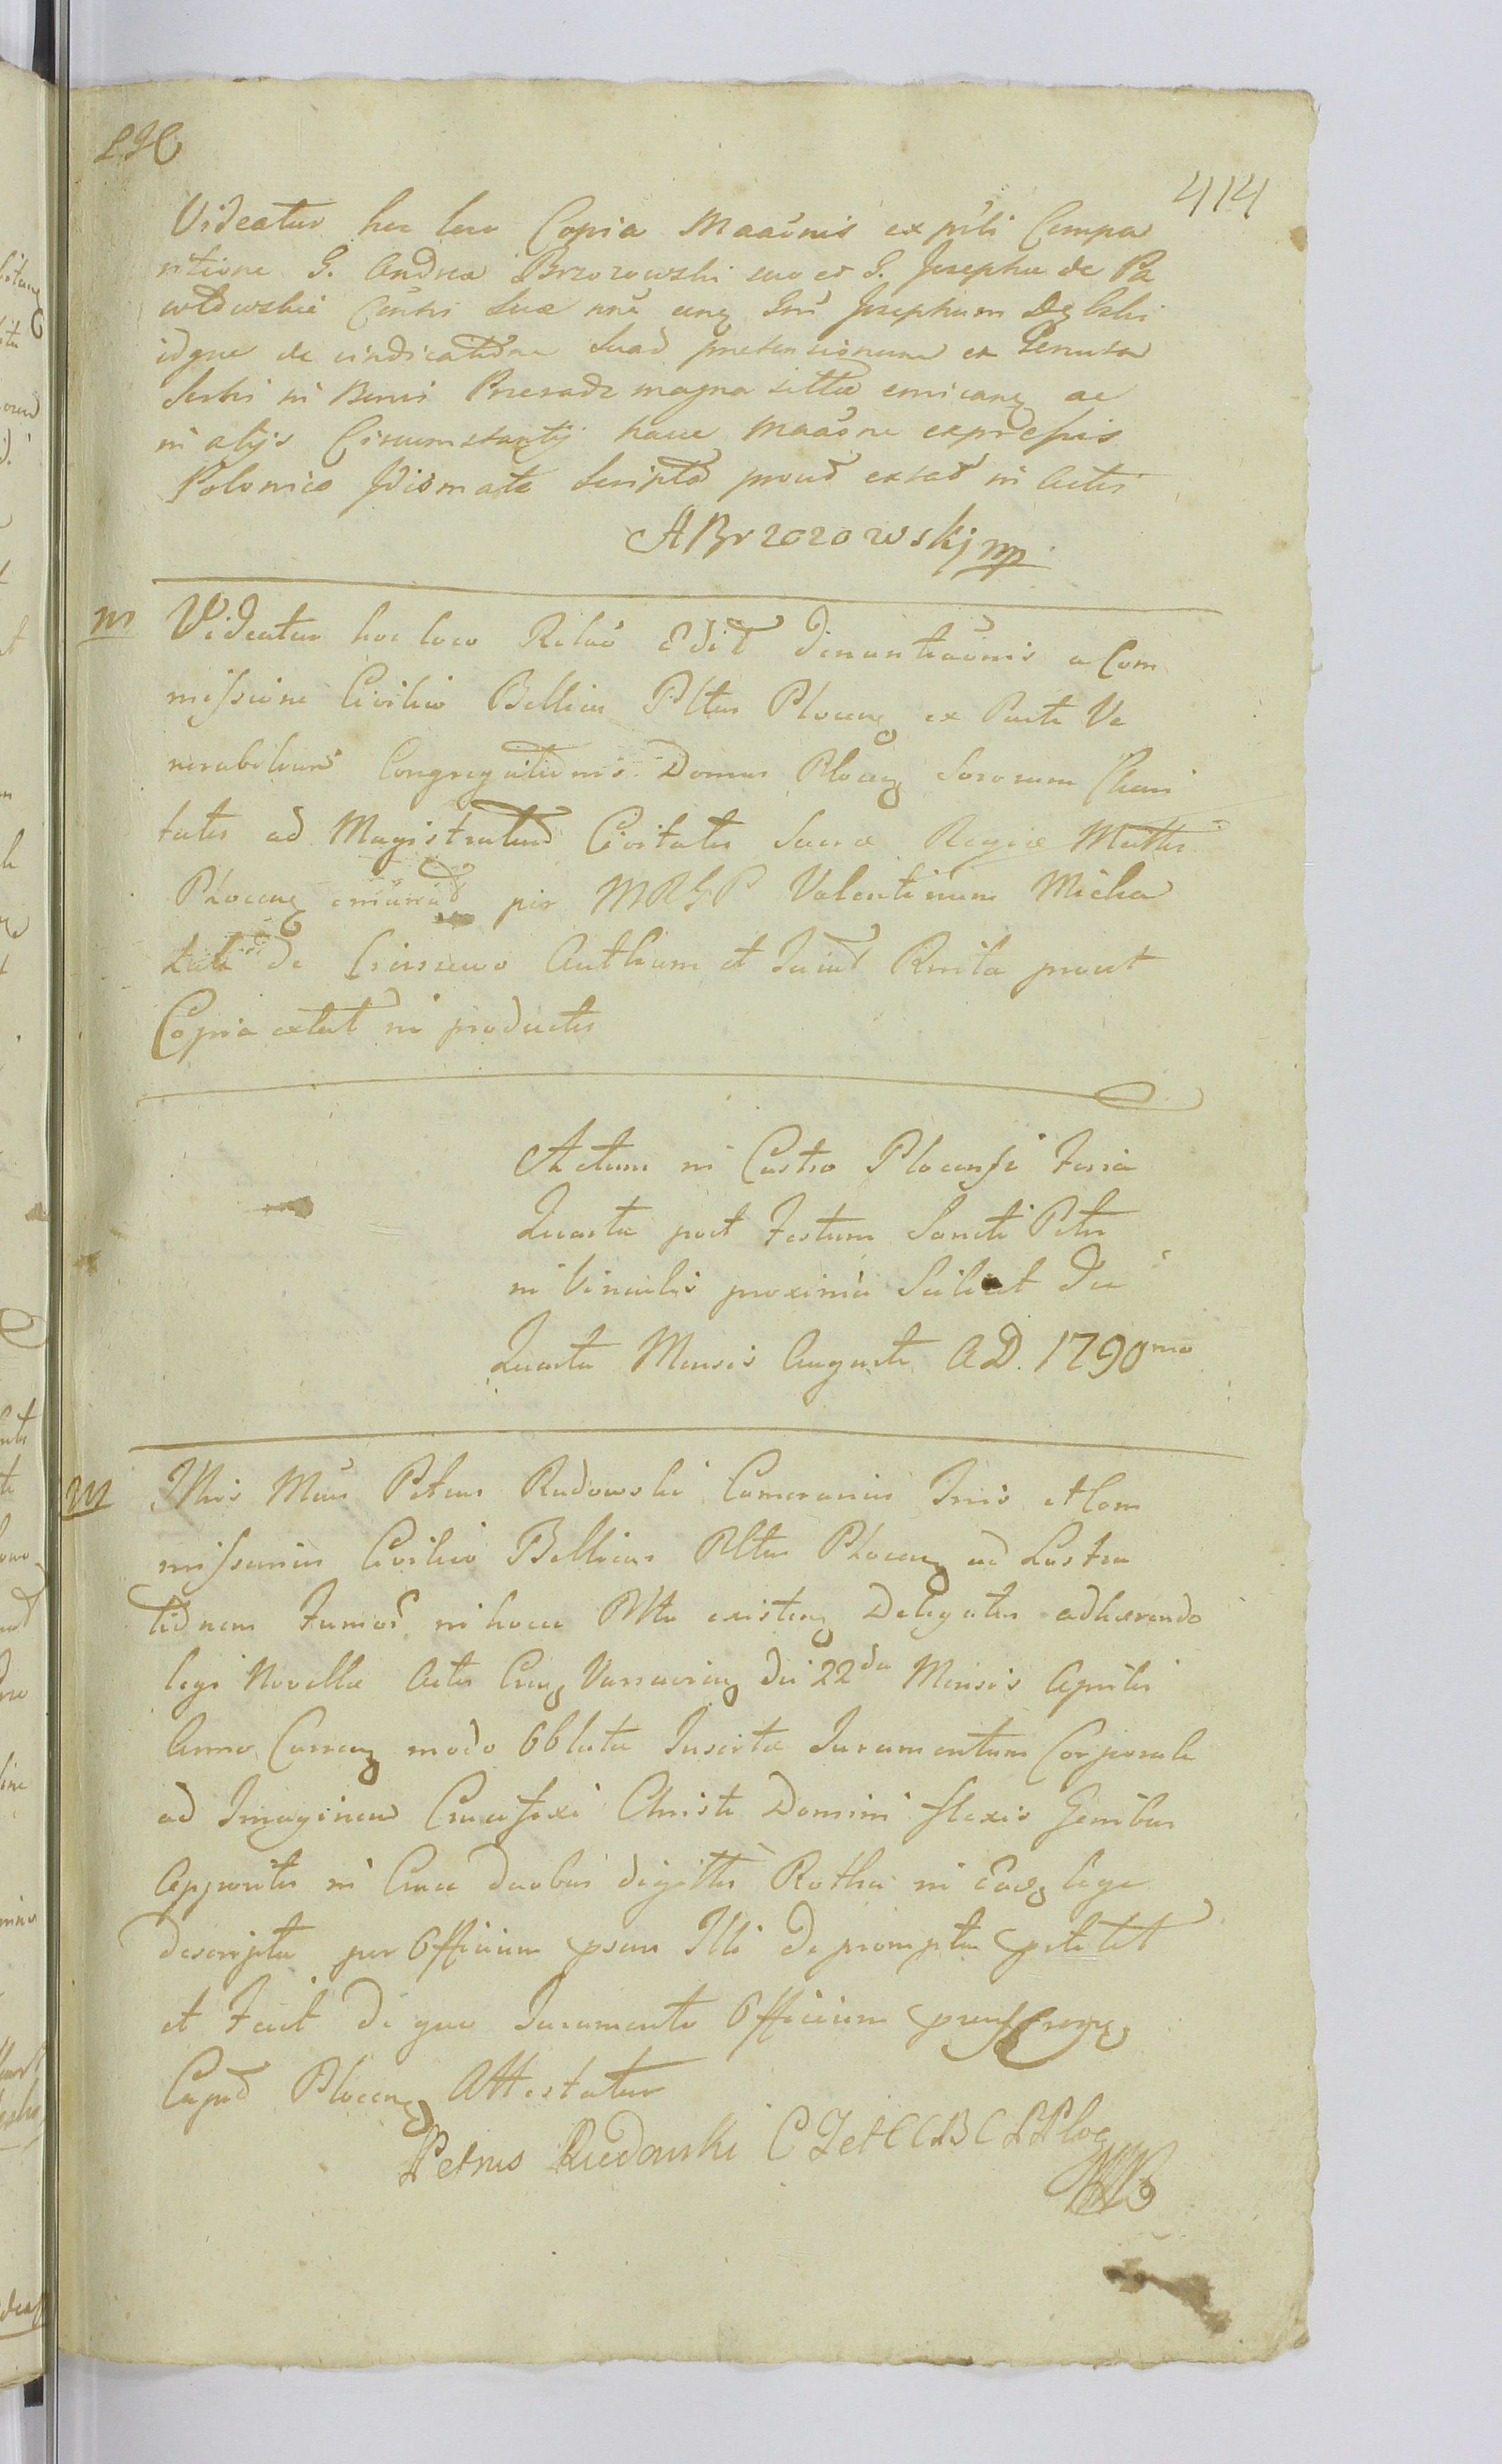 414
Videatur hoc loco Copia Maaõnis ex pñti Compa
ritione G. Andrea Brzozowski suo et G. Josephae de Pa
włowskie Cõnsis suae nñe Josephum Dębski
idque de vindicatiõne Suaꝝ pretensionum ex Tenuta
Sorti in Bonis magna sittae ac
in alijs Circumstantij hacce Maaõne expreſsis
Polonico Jdiomate Scripta prout extat in Actis
ABrzozowskj mp
m Videatur hoc loco Relaõ Edit Denuntiaõnis a Com
miſsione Civilio Bellica Pltus Plocen ex Parte Ve
nerabilium Congregatiõnis Domus Plocen Sororum Chari
tatis ad Magistratum Civitatis Sacrae Regiae Mattis
Plocen per MRGP Valentinum Micha
de Authum et Rñita prout
Copia extat in productis
Actum in Castro Plocensi Feria
Quarta post Festum Sancti Petri
in Vinculis proxima Scilicet Die
Quarta Mensis Augusti AD. 1790mo
m Mcus Petrus Rudowski Camerarius et Com
miſsarius Civilio Bellicus Pltus Plocen ad Lustra
tiõnem Fumoꝝ in hocce Plttu existen Delegatus adhaerendo
legi Novellae Actis Varsavien die 22da Mensis Aprilis
Anno Curren modo Oblatae Insertae Juramentum Corporale
ad Imaginem Crucifixi Christi Domini flexis Genibus
Appositis in Cruce duobus digittis Rotha in lege
descripta per Officium psens Illi deprompta pstitit
et Fecit de quo Juramento Officium psens
Plocen Attestatur
Petrus Rudowski C Z et C C B C P Ploc